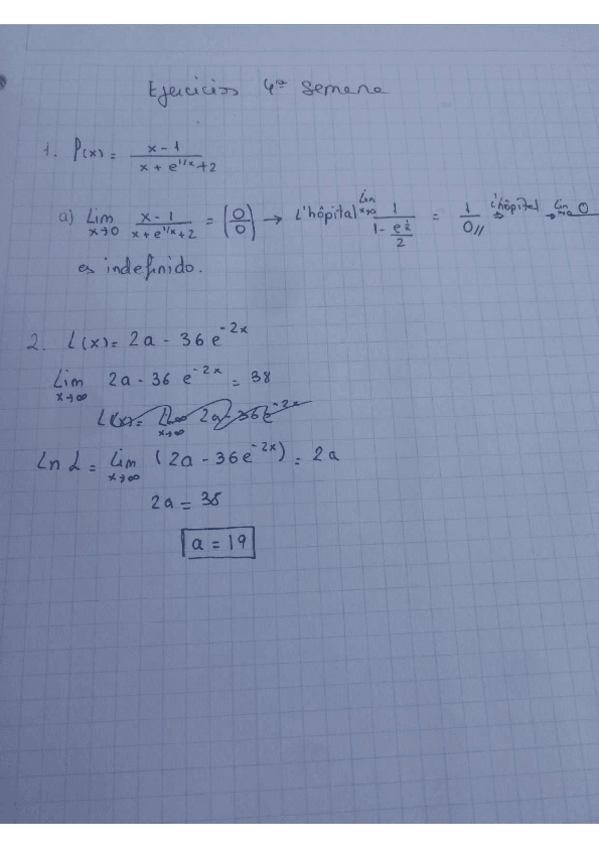 Ejercicios 4ª semana
1. P(x) = x-1 / x + e^1/x + 2
a) Lim x→0 x-1 / x + e^1/x + 2 = (0/0) → L'hôpital Lim x→0 1 / 1 - e^½/2 = 1/0 // L'hôpital → Lim 0
es indefinido.
2. L(x) = 2a - 36 e^-2x
Lim x→∞ 2a - 36 e^-2x = 38
Ln L = lim x→∞ (2a - 36e^-2x) = 2a
2a = 38
a = 19